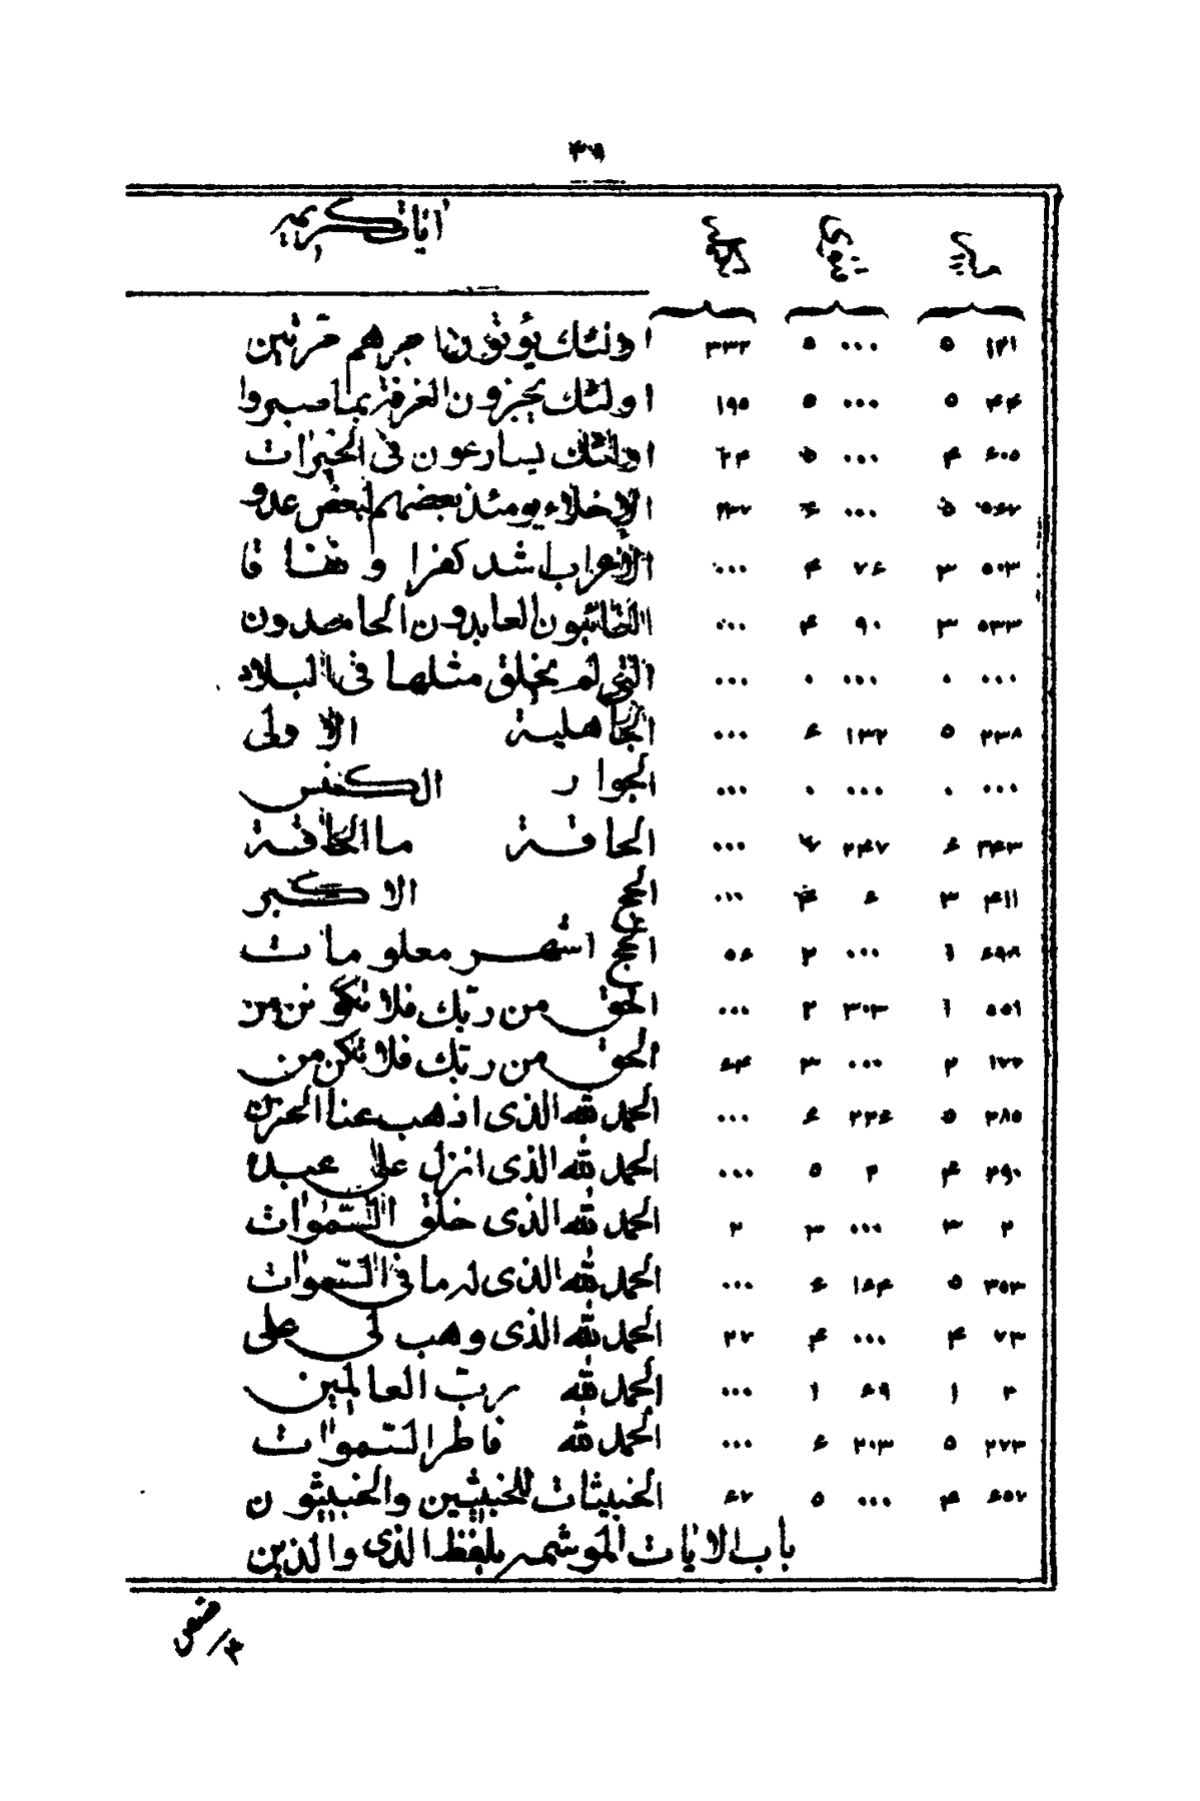 ايات كريمه
١٢١ ٥ ... ٥ ٣٣٢ اولئك يؤتون اجرهم مرتين
٤٤ ٥ ... ٥ ١٩٥ اولئك يجزون الغرفة بما صبروا
٦٠٥ ٤ ... اولئك يسارعون فى الخيرات
... الاخلاء يومئذ بعضهم لبعض عدو
٥٠٣ ٣ ٧٦ ٤ ... الاعراب اشد كفرا و نفاقا
٥٣٣ ٣ ٩٠ ٤ ... التائبون العابدون الحامدون
... ٠ ... ٠ ... التى لم يخلق مثلها فى البلاد
٢٣٨ ٥ ١٣٢ ٦ ... الجاهلية الاولى
... ٠ ... ٠ ... الجوار الكنس
٣٤٣ ٦ ٢٤٧ ... الحاقة ما الحاقة
٤١١ ٣ ٦ ٤ ... الحج الاكبر
٦٩٨ ١ ... ٢ ٥٦ الحج اشهر معلومات
٥٥١ ١ ٣٠٣ ٢ ... الحق من ربك فلا تكونن من
١٧٢ ٢ ... ٣ ٦٤ الحق من ربك فلا تكن من
٣٨٥ ٥ ٢٢٦ ٦ ... الحمد لله الذى اذهب عنا الحزن
٢٩٠ ٤ ٢ ٥ ... الحمد لله الذى انزل على عبده
٢ ٣ ... ٣ ٢ الحمد لله الذى خلق السموات
٣٥٣ ٥ ١٦٤ ٦ ... الحمد لله الذى له ما فى السموات
٧٣ ٤ ... ٤ ٢٧ الحمد لله الذى وهب لى على
٢ ١ ٦٩ ١ ... الحمد لله رب العالمين
٢٧٣ ٥ ٢٠٣ ٦ ... الحمد لله فاطر السموات
٦٥٧ ٤ ... ٥ ٦٧ الخبيثات للخبيثين والخبيثون
باب الايات الموشمه بلفظ الذى والذين